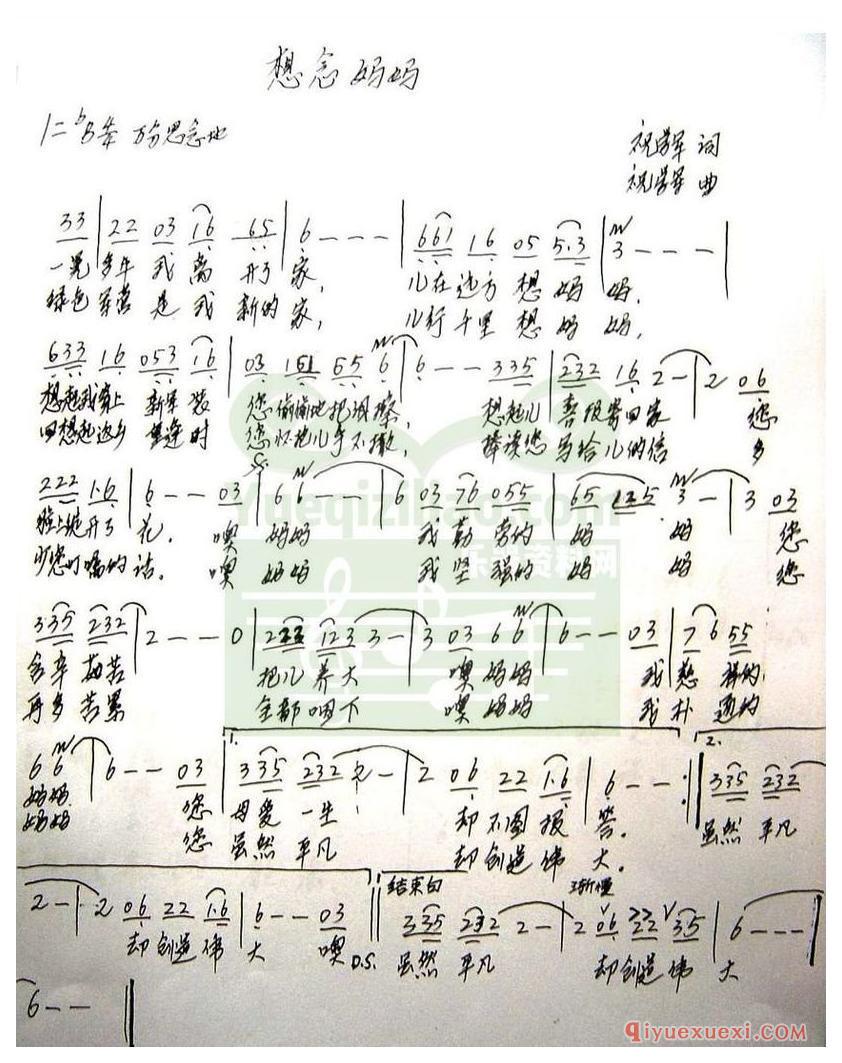 想念妈妈
1=ᵇB 4/4 万分思念地
祝学军 词
祝学军 曲
33 | 22 03 16 65 | 6 - - - | 661 16 05 5·3 | 3 - - - |
一晃 多年 我 离 开了 家, 儿在边方 想 妈 妈,
绿色 军营 是 我 新的 家, 儿行千里 想 妈 妈,
633 16 053 16 | 03 161 65 6 | 6 - - 335 | 232 16 2 - | 2 06
想起我穿上 新军 装 您 偷偷地 把泪擦, 想起儿 喜报寄回家 您
回想起返乡 重逢时 您 怀抱儿 手不撒, 捧读您 写给儿的信 多
222 1·6 | 6 - - 03 | 6 6 - - | 6 03 76 055 | 65 125 3 - | 3 03
脸上绽开了 花. 噢 妈妈 我 勤 劳的 妈 妈 您
少您叮嘱的 话. 噢 妈妈 我 坚 强的 妈 妈 您
335 232 | 2 - - 0 | 223 123 3 - | 3 03 6 6 | 6 - - 03 | 7 6 55
含辛 茹苦 把儿 养大 噢 妈妈 我 慈 祥的
再多 苦累 全都 咽下 噢 妈妈 我 朴 通的
1. 2.
6 6 | 6 - - 03 | 335 232 2 - | 2 06 22 1·6 | 6 - - :‖ 335 232
妈妈 您 母爱 一生 却 不图 报 答. 虽然 平凡
妈妈 您 虽然 平凡 却 创造 伟 大.
结束句 渐慢
2 - | 2 06 22 1·6 | 6 - - 03 ‖ 335 232 2 - | 2 06 22 35 | 6 - - - |
却 创造 伟 大 噢 D.S. 虽然 平凡 却 创造 伟 大
6 - - ‖
Yueqiziliao.com
乐器资料网
Qiyuexuexi.com